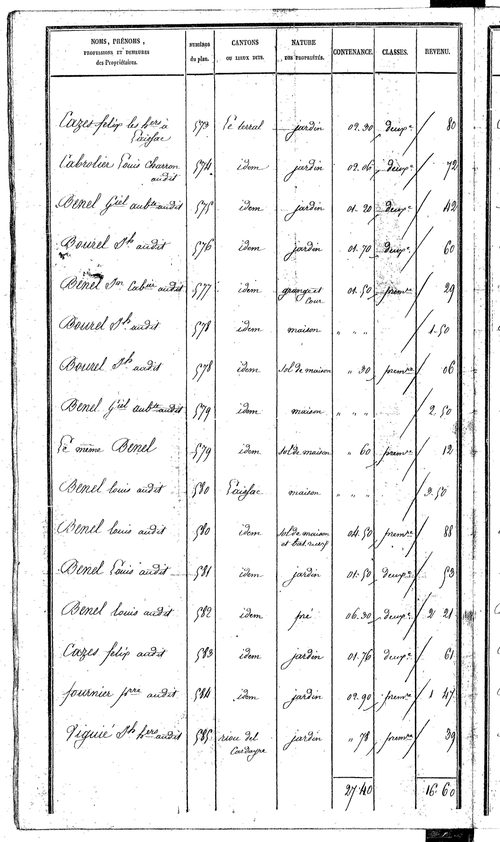 NOMS, PRÉNOMS, PROFESSIONS ET DEMEURES des Propriétaires. NUMÉROS du plan. CANTONS OU LIEUX DITS. NATURE DES PROPRIÉTÉS. CONTENANCE. CLASSES. REVENU.
Cazes felix les hers à Laissac 573 Le terral jardin 02.30 deuxe 80
Cabrolier Louis Charron audit 574 idem jardin 02.06 deuxe 72
Benel Giel aubte audit 575 idem jardin 01.20 deuxe 42
Bourel Jh audit 576 idem jardin 01.70 deuxe 60
Benel audit 577 idem grange et Cour 01.50 premre 29
Bourel Jh audit 578 idem maison " " " 1.50
Bourel Jh audit 578 idem sol de maison " 30 premre 06
Benel Giel aubte audit 579 idem maison " " " 2.50
Le même Benel 579 idem sol de maison " 60 premre 12
Benel louis audit 580 Laissac maison " " " 3.50
Benel louis audit 580 idem sol de maison et 04.50 premre 88
Benel Louis audit 581 idem jardin 01.50 deuxe 53
Benel louis audit 582 idem pré 06.30 deuxe 2 21
Cazes felix audit 583 idem jardin 01.76 deuxe 61
fournier pierre audit 584 idem jardin 02.90 premre 1 47
Viguié Jh hers audit 585 rieu del jardin " 78 premre 39
27.40 16.60